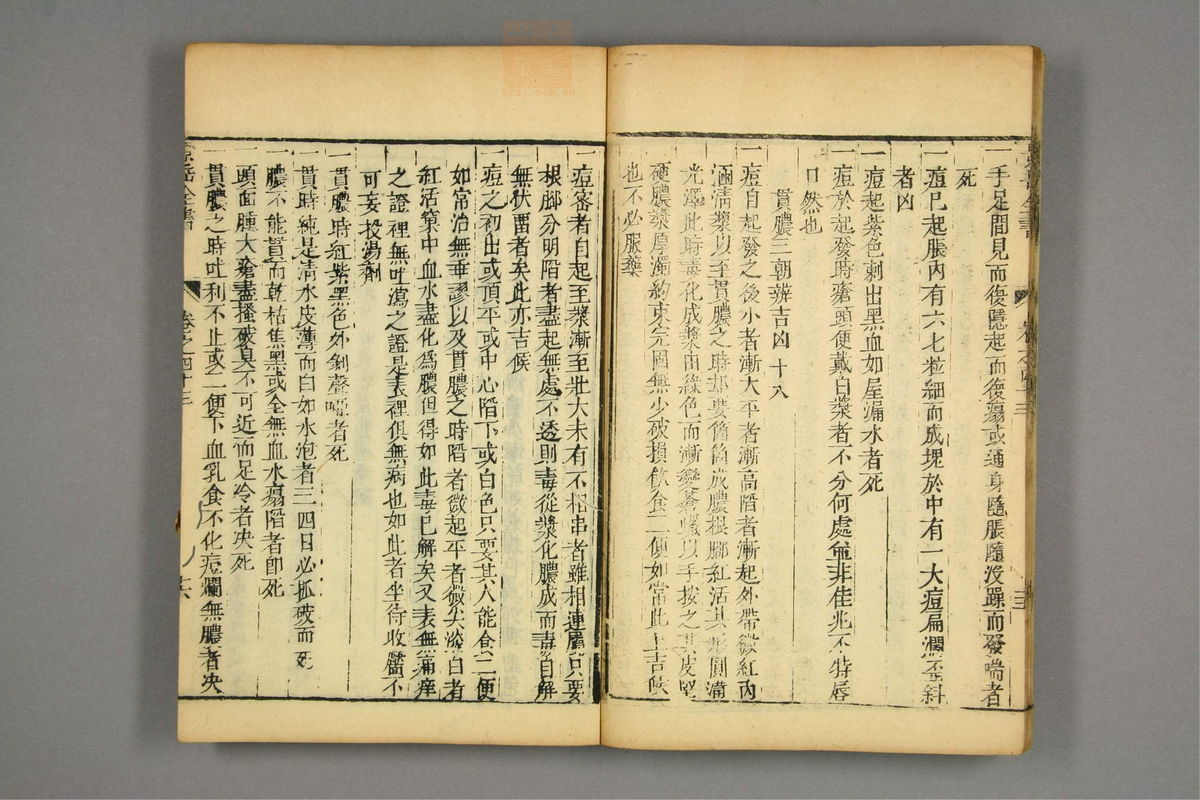 一手足間見而復隱起而復瘍或通身隨脹隨沒躁而發喘者
死
一痘已起脹內有六七粒細而成塊於中有一大痘扁爛歪斜
者凶
一痘起紫色刺出黑血如屋漏水者死
一痘於起發時瘡頭便戴白漿者不分何處並非佳兆不特唇
口然也
貫膿三朝辨吉凶 十八
一痘自起發之後小者漸大平者漸高陷者漸起外帶微紅內
涵清漿以至貫膿之時却要箇箇成膿根脚紅活其形圓滿
光澤此時毒化成漿由綠色而漸變蒼蠟以手按之其皮堅
硬膿漿原濁約束完固無少破損飲食二便如常此上吉候
也不必服藥
一痘密者自起至漿漸至壯大未有不相串者雖相連屬只要
根脚分明陷者盡起無處不透則毒從漿化膿成而毒自解
無伏畱者矣此亦吉候
一痘之初出或頂平或中心陷下或白色只要其人能食二便
如常治無乖謬以及貫膿之時陷者微起平者微尖淡白者
紅活窠中血水盡化為膿但得如此毒已解矣又表無痛痒
之證裡無吐瀉之證是表裡俱無病也如此者坐待收靨不
可妄投湯劑
一貫膿時紅紫黑色外剝聲啞者死
一貫時純是清水皮薄而白如水泡者三四日必抓破而死
膿不能貫而乾枯焦黑或全無血水瘍陷者卽死
頭面腫大瘡盡搔破臭不可近而足冷者决死
貫膿之時吐利不止或二便下血乳食不化痘爛無膿者决
景岳全書
卷之四十三